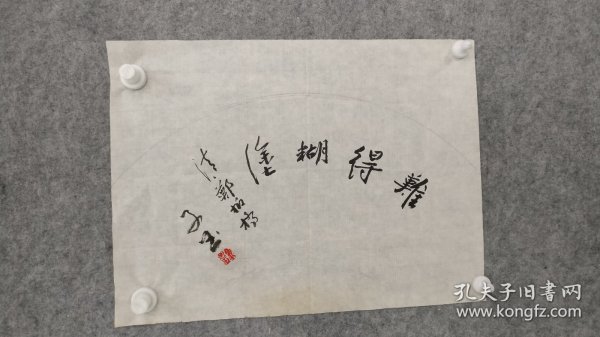 難得糊塗
清鄭板橋
孔夫子旧书网
www.kongfz.com